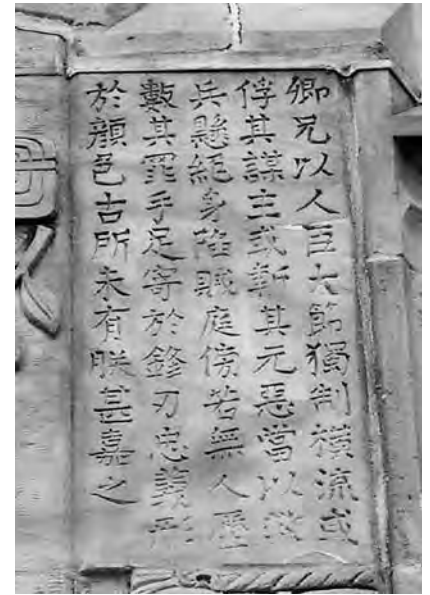 卿兄以人臣大節獨制橫流或
俘其謀主或斬其元惡當以救
兵懸絕身陷賊庭傍若無人歷
數其罪手足寄於鋒刃忠義形
於顏色古所未有朕甚嘉之